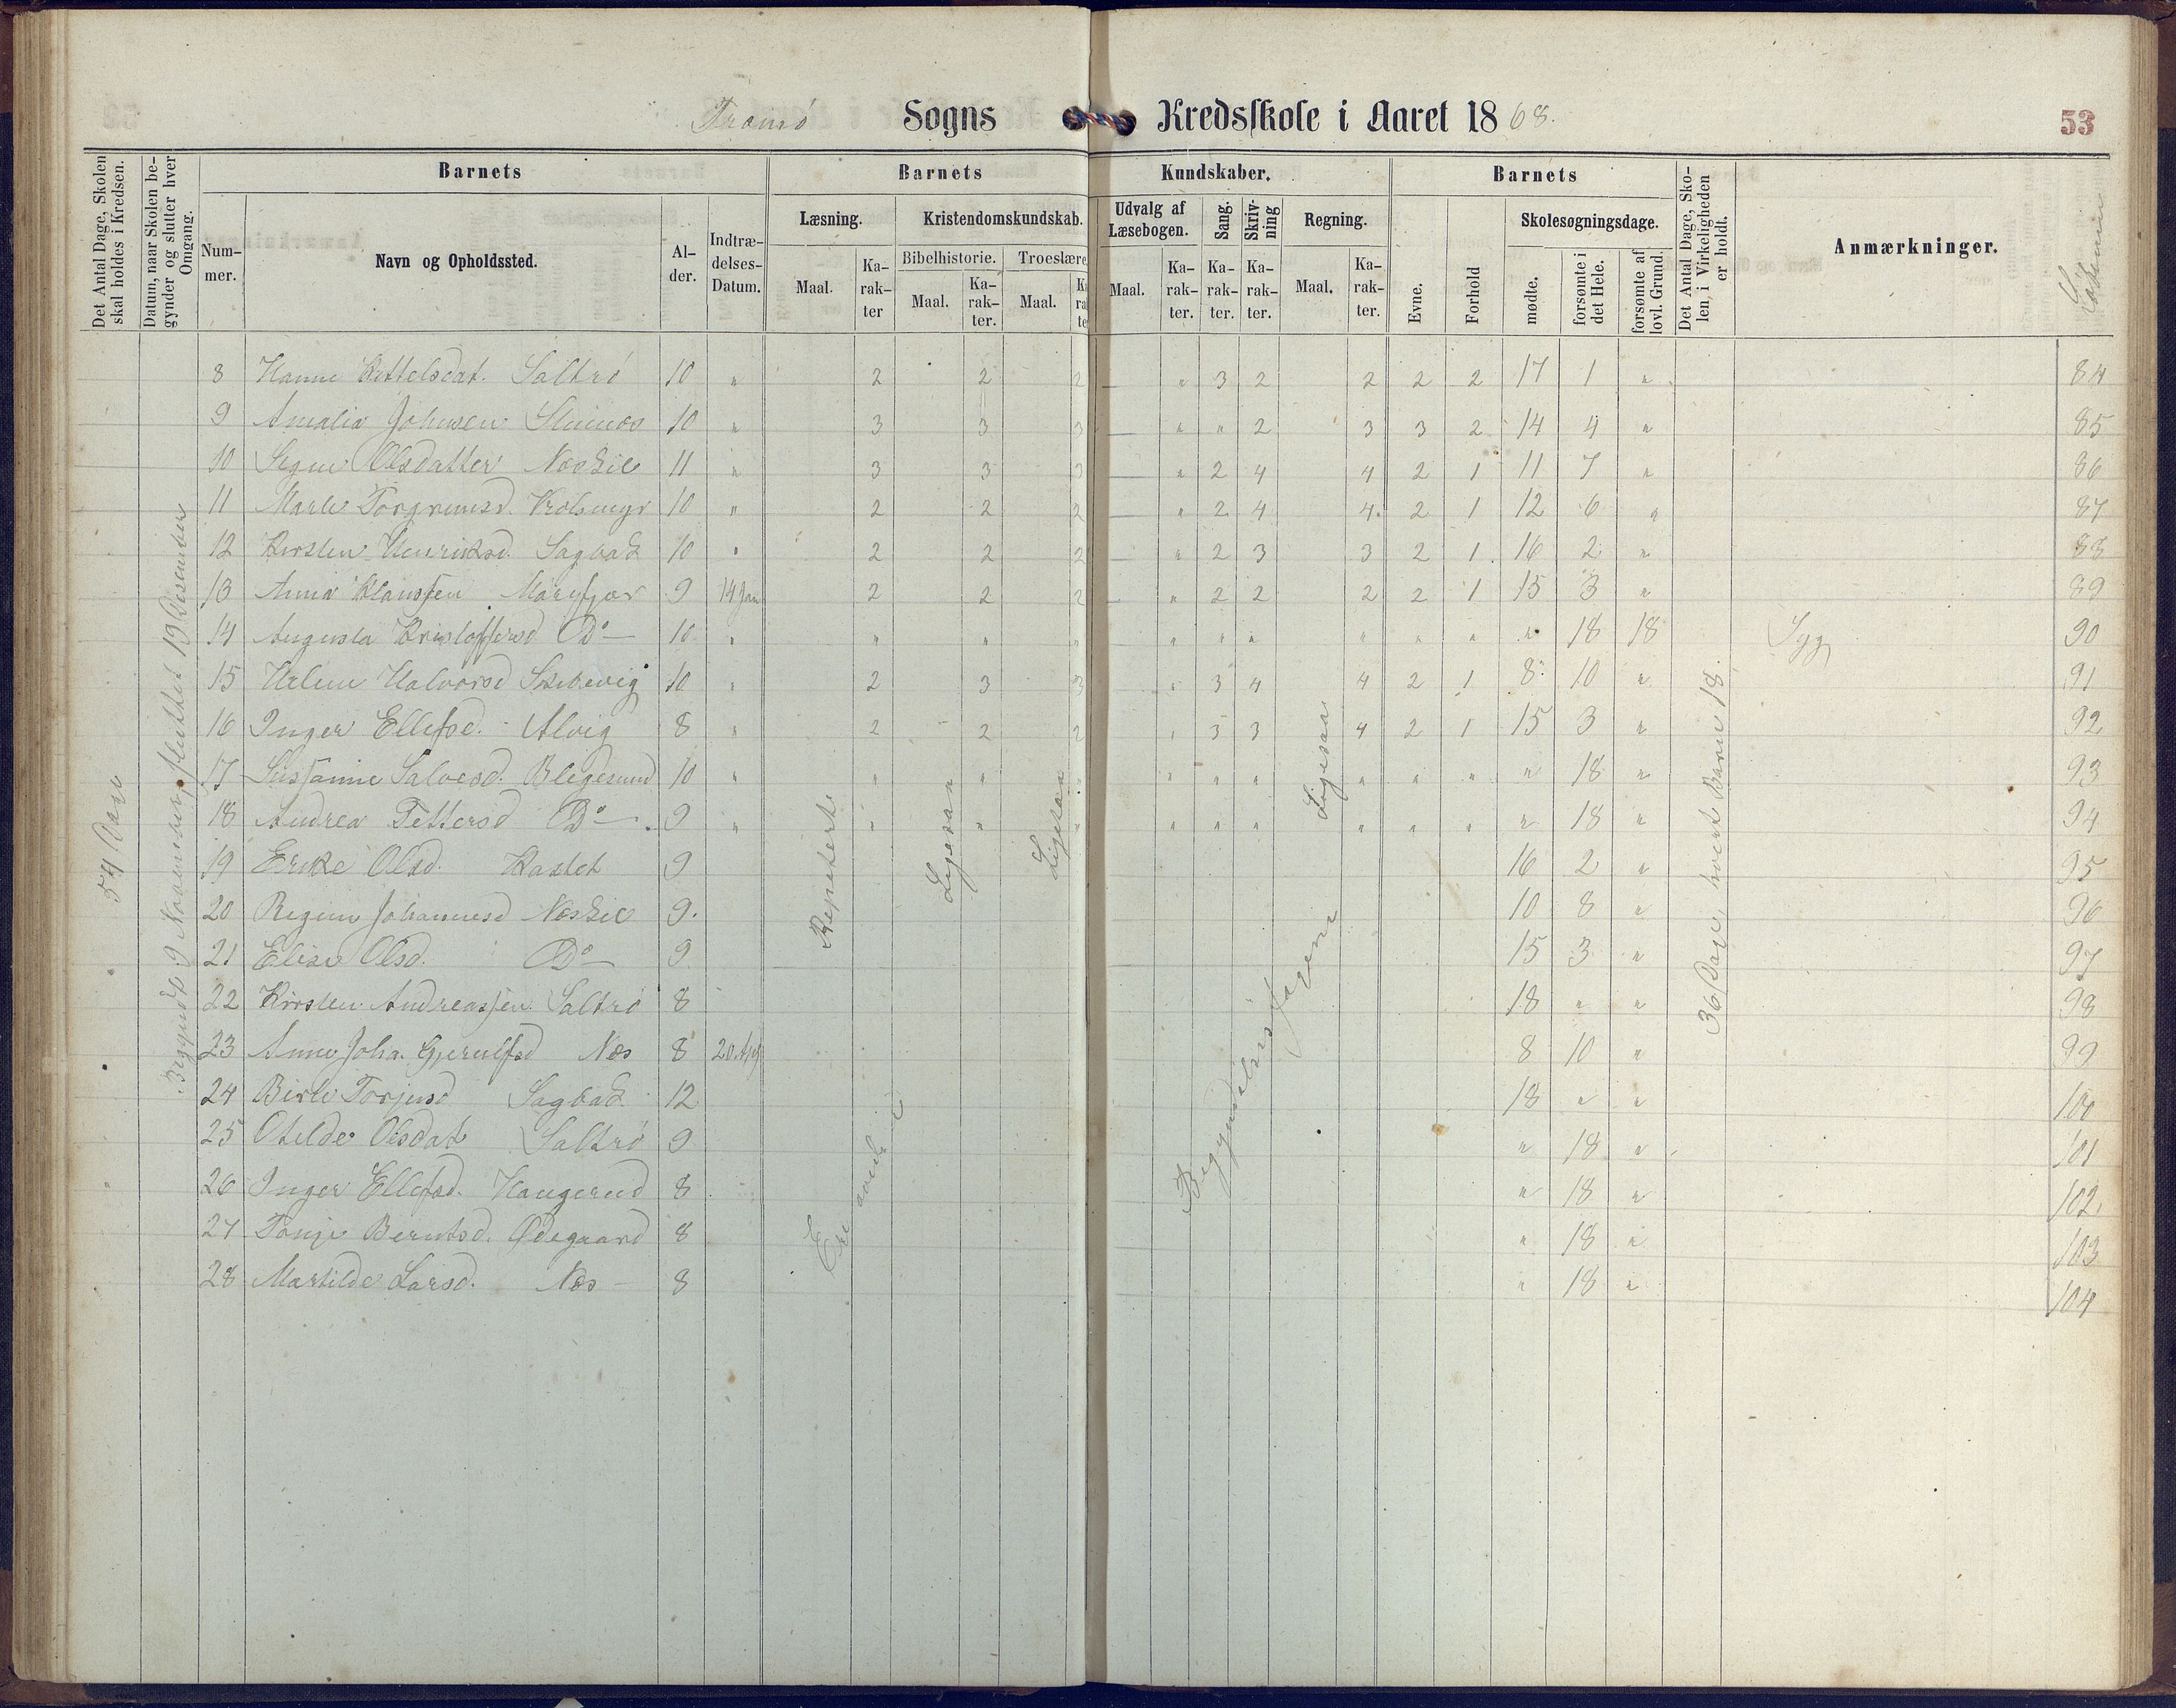 Tromø Sogns Kredsskole i Aaret 1868.
53
Det Antal Dage, Skolen skal holdes i Kredsen.
Datum, naar Skolen begynder og slutter hver Omgang.
Barnets
Barnets
Kundskaber.
Barnets
Det Antal Dage, Skolen i Virkeligheden er holdt.
Anmærkninger.
Nummer.
Navn og Opholdssted.
Alder.
Indtrædelses-Datum.
Læsning.
Kristendomskundskab.
Udvalg af Læsebogen.
Sang.
Skrivning
Regning.
Evne.
Forhold
Skolesøgningsdage.
Bibelhistorie.
Troeslære
Maal.
Karakter
Maal.
Karakter.
Maal.
Maal.
Karakter.
Karakter.
Karakter.
Maal.
Karakter.
mødte.
forsømte i det Hele.
forsømte af lovl. Grund.
8 Hanne Kittelsdat. Saltrø 10 " 2 2 2 " 3 2 2 2 2 17 1 " 84
9 Amalia Johnsen 10 " 3 3 3 " " 2 3 3 2 14 4 " 85
10 Olsdatter Neskil 11 " 3 3 3 " 2 4 4 2 1 11 7 " 86
11 Marte Torgrimsd. 10 " 2 2 2 " 2 4 4. 2 1 12 6 " 87
12 Kirsten Henriksd. Sagbak 10 " 2 2 2 " 2 3 3 2 1 16 2 " 88
13 Anna Klaussen Marifjær 9 14 Jan 2 2 2 " 2 2 2 2 1 15 3 " 89
14 Augusta Kristoffersd Do 10 " " " " " " " " " " " 18 18 Syg 90
15 Helene Halvorsd Skibevig 10 " 2 3 3 " 3 4 4 2 1 8 10 " 91
16 Inger Ellefsd. Alvig 8 " 2 2 2 " 3 3 4 2 1 15 3 " 92
17 Sussanne Salvesd. Blegesund 10 " " " " " " " " " " " 18 " 93
18 Andrea Pettersd Do 9 " " " " " " " " " " " 18 " 94
19 Olsd. Kastet 9 16 2 " 95
20 Regine Johannesd Neskil 9. 10 8 " 96
21 Elise Olsd. Do 9 15 3 " 97
22 Kirsten Andreassen Saltrø 8 18 " " 98
23 Anne Joha. Gjerulfsd Nes 8 20 Apr 8 10 " 99
24 Birte Torjusd Sagbak 12 18 " " 100
25 Otilde Olsdat Saltrø 9 " 18 " 101
26 Inger Ellefsd. Haugerud 8 " 18 " 102
27 Tonje Berntsd. Ødegaard 8 " 18 " 103
28 Martilde Larsd. Nes 8 " 18 " 104
54 Dage
Begyndt 9 November, sluttet 19 Desember
Repeterte
Ligesaa
Ligesaa
Ligesaa
Begyndelsesfagene
36 Dage, hvert Barn 18.